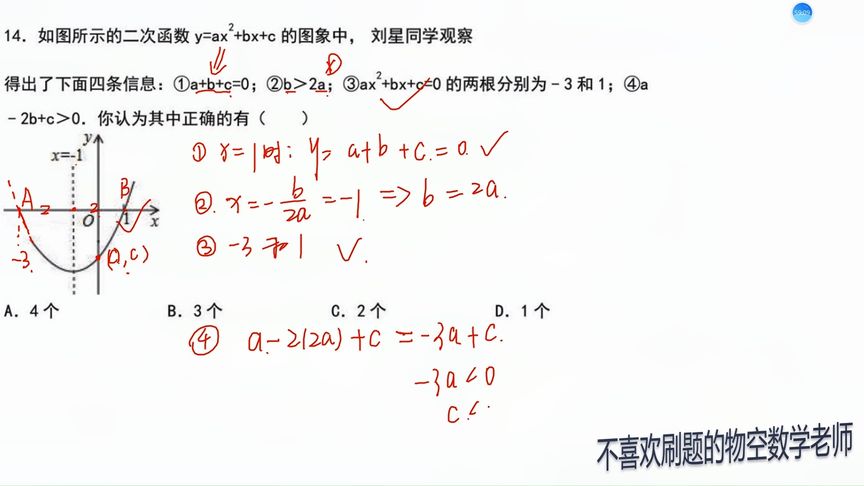 59:09
14. 如图所示的二次函数 y=ax²+bx+c 的图象中， 刘星同学观察
得出了下面四条信息：①a+b+c=0；②b＞2a；③ax²+bx+c=0 的两根分别为﹣3 和 1；④a
﹣2b+c＞0．你认为其中正确的有（ ）
y
x=-1
A
B
2
2
O
1
x
-3
(0,c)
① x=1时: y= a+b+c=0 ✓
② x=-b/2a=-1 => b=2a.
③ -3 和 1 ✓.
A. 4 个 B. 3 个 C. 2 个 D. 1 个
④ a-2(2a)+c =-3a+c.
-3a<0
c<
不喜欢刷题的物空数学老师